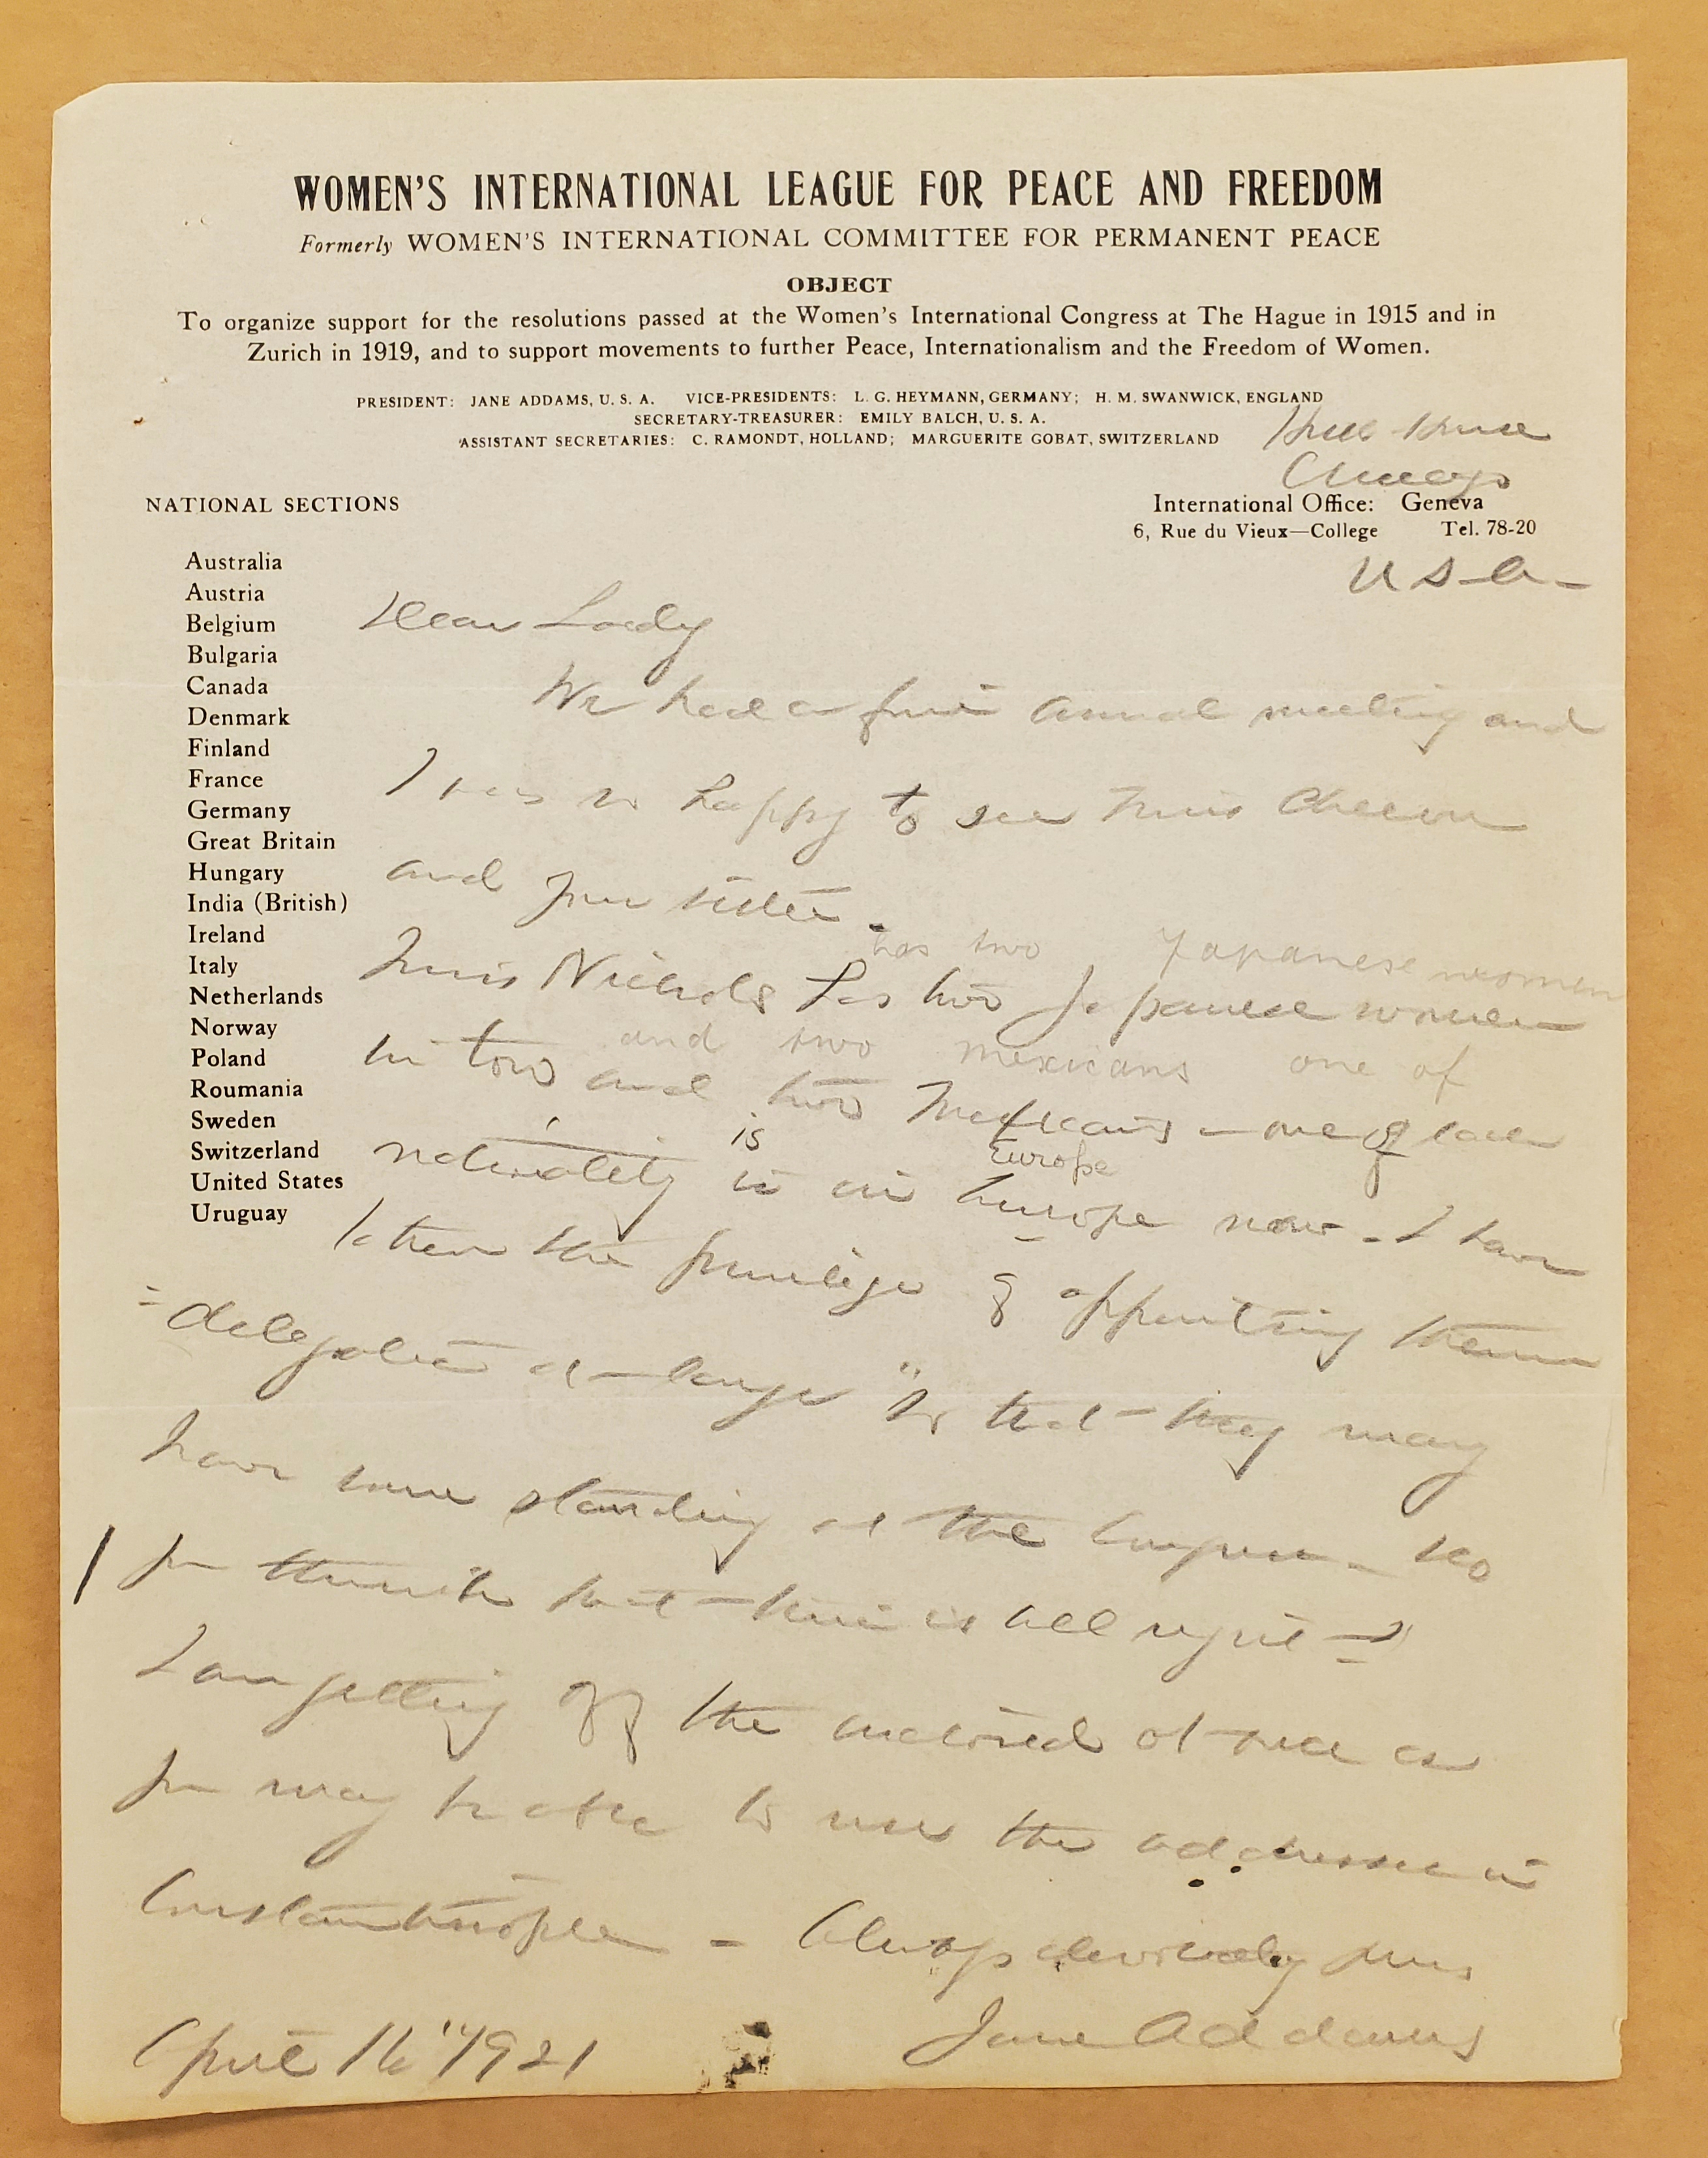 WOMEN'S INTERNATIONAL LEAGUE FOR PEACE AND FREEDOM
Formerly WOMEN'S INTERNATIONAL COMMITTEE FOR PERMANENT PEACE
OBJECT
To organize support for the resolutions passed at the Women's International Congress at The Hague in 1915 and in
Zurich in 1919, and to support movements to further Peace, Internationalism and the Freedom of Women.
PRESIDENT: JANE ADDAMS, U. S. A. VICE-PRESIDENTS: L. G. HEYMANN, GERMANY; H. M. SWANWICK, ENGLAND
SECRETARY-TREASURER: EMILY BALCH, U. S. A.
ASSISTANT SECRETARIES: C. RAMONDT, HOLLAND; MARGUERITE GOBAT, SWITZERLAND
Hull House
Chicago
NATIONAL SECTIONS
International Office: Geneva
6, Rue du Vieux—College Tel. 78-20
U S A-
Australia
Austria
Belgium
Bulgaria
Canada
Denmark
Finland
France
Germany
Great Britain
Hungary
India (British)
Ireland
Italy
Netherlands
Norway
Poland
Roumania
Sweden
Switzerland
United States
Uruguay
Dear Lady
We had a fine annual meeting and
I was so happy to see Miss
and your sister.
has two Japanese women
Miss Nichols has two Japanese women
and two mexicans one of
in tow and two Mexicans - one of each
is Europe
nationality is in Europe now - I have
taken the privilege of appointing them
"delegates at-large" so that they may
have some standing at the Congress - Do
you think that this is all right?
I am getting off the material at once as
you may be able to use the addresses in
Constantinople - Always devotedly yours
Jane Addams
April 16" 1921